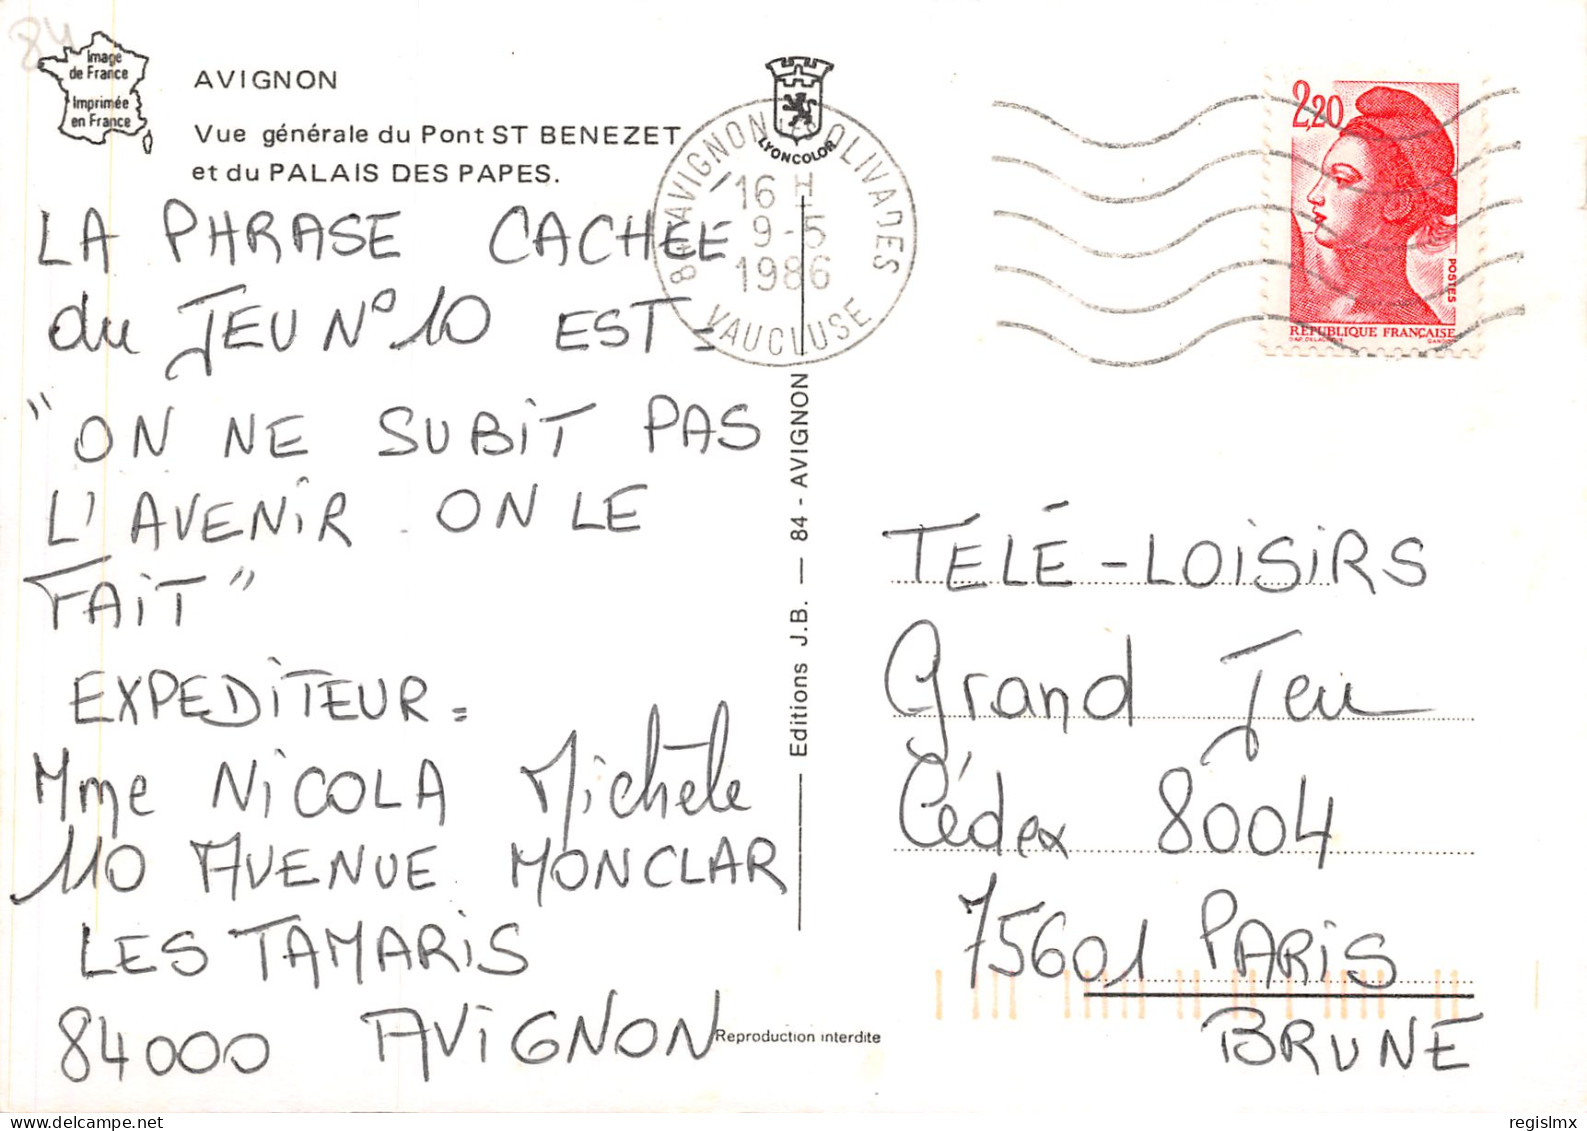 84
Image
de France
Imprimée
en France
AVIGNON
Vue générale du Pont ST BENEZET
et du PALAIS DES PAPES.
LYONCOLOR
84 AVIGNON LES OLIVADES
16 H
9-5
1986
VAUCLUSE
2,20
POSTES
REPUBLIQUE FRANÇAISE
LA PHRASE CACHÉE
du JEU N° 10 EST =
"ON NE SUBIT PAS
L'AVENIR. ON LE
FAIT"
EXPEDITEUR =
Mme NICOLA Michèle
110 AVENUE MONCLAR
LES TAMARIS
84000 AVIGNON
Editions J.B. — 84 - AVIGNON
TÉLÉ-LOISIRS
Grand Jeu
Cédex 8004
75601 PARIS
BRUNE
Reproduction interdite
regislmx